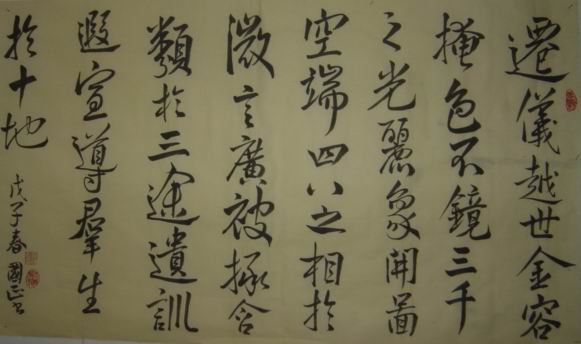 遷儀越世金容
掩色不鏡三千
之光麗象開圖
空端四八之相於
微言廣被拯含
類於三途遺訓
遐宣導羣生
於十地
戊子春國正書